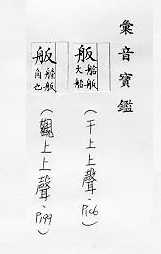 彙音寶鑑
舨 舩舨 大船
(干上上聲·P106)
舨 舩舨 角也
(觀上上聲·P199)